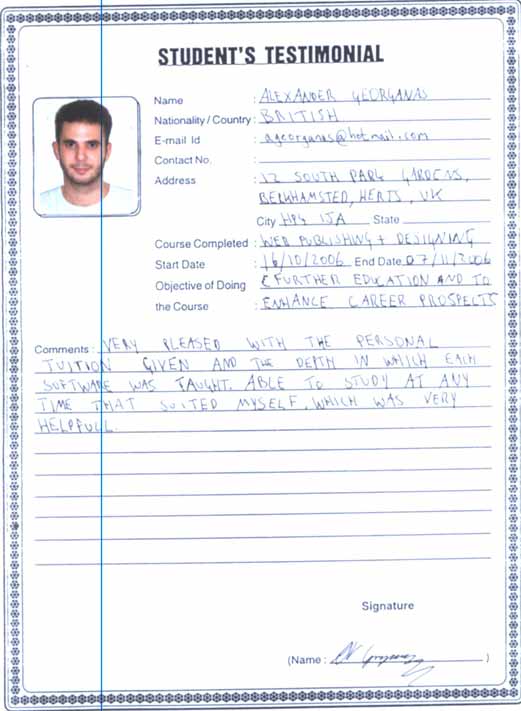 STUDENT'S TESTIMONIAL
Name : ALEXANDER GEORGANAS
Nationality / Country : BRITISH
E-mail Id : ageorganas@hotmail.com
Contact No. :
Address : 12 SOUTH PARK GARDENS,
BERKHAMSTED, HERTS, UK
City HP4 1JA State
Course Completed : WEB PUBLISHING + DESIGNING
Start Date : 16/10/2006 End Date 07/11/2006
Objective of Doing : FURTHER EDUCATION AND TO
the Course : ENHANCE CAREER PROSPECTS
Comments : VERY PLEASED WITH THE PERSONAL
TUITION GIVEN AND THE DEPTH IN WHICH EACH
SOFTWARE WAS TAUGHT. ABLE TO STUDY AT ANY
TIME THAT SUITED MYSELF, WHICH WAS VERY
HELPFULL.
Signature
(Name : )